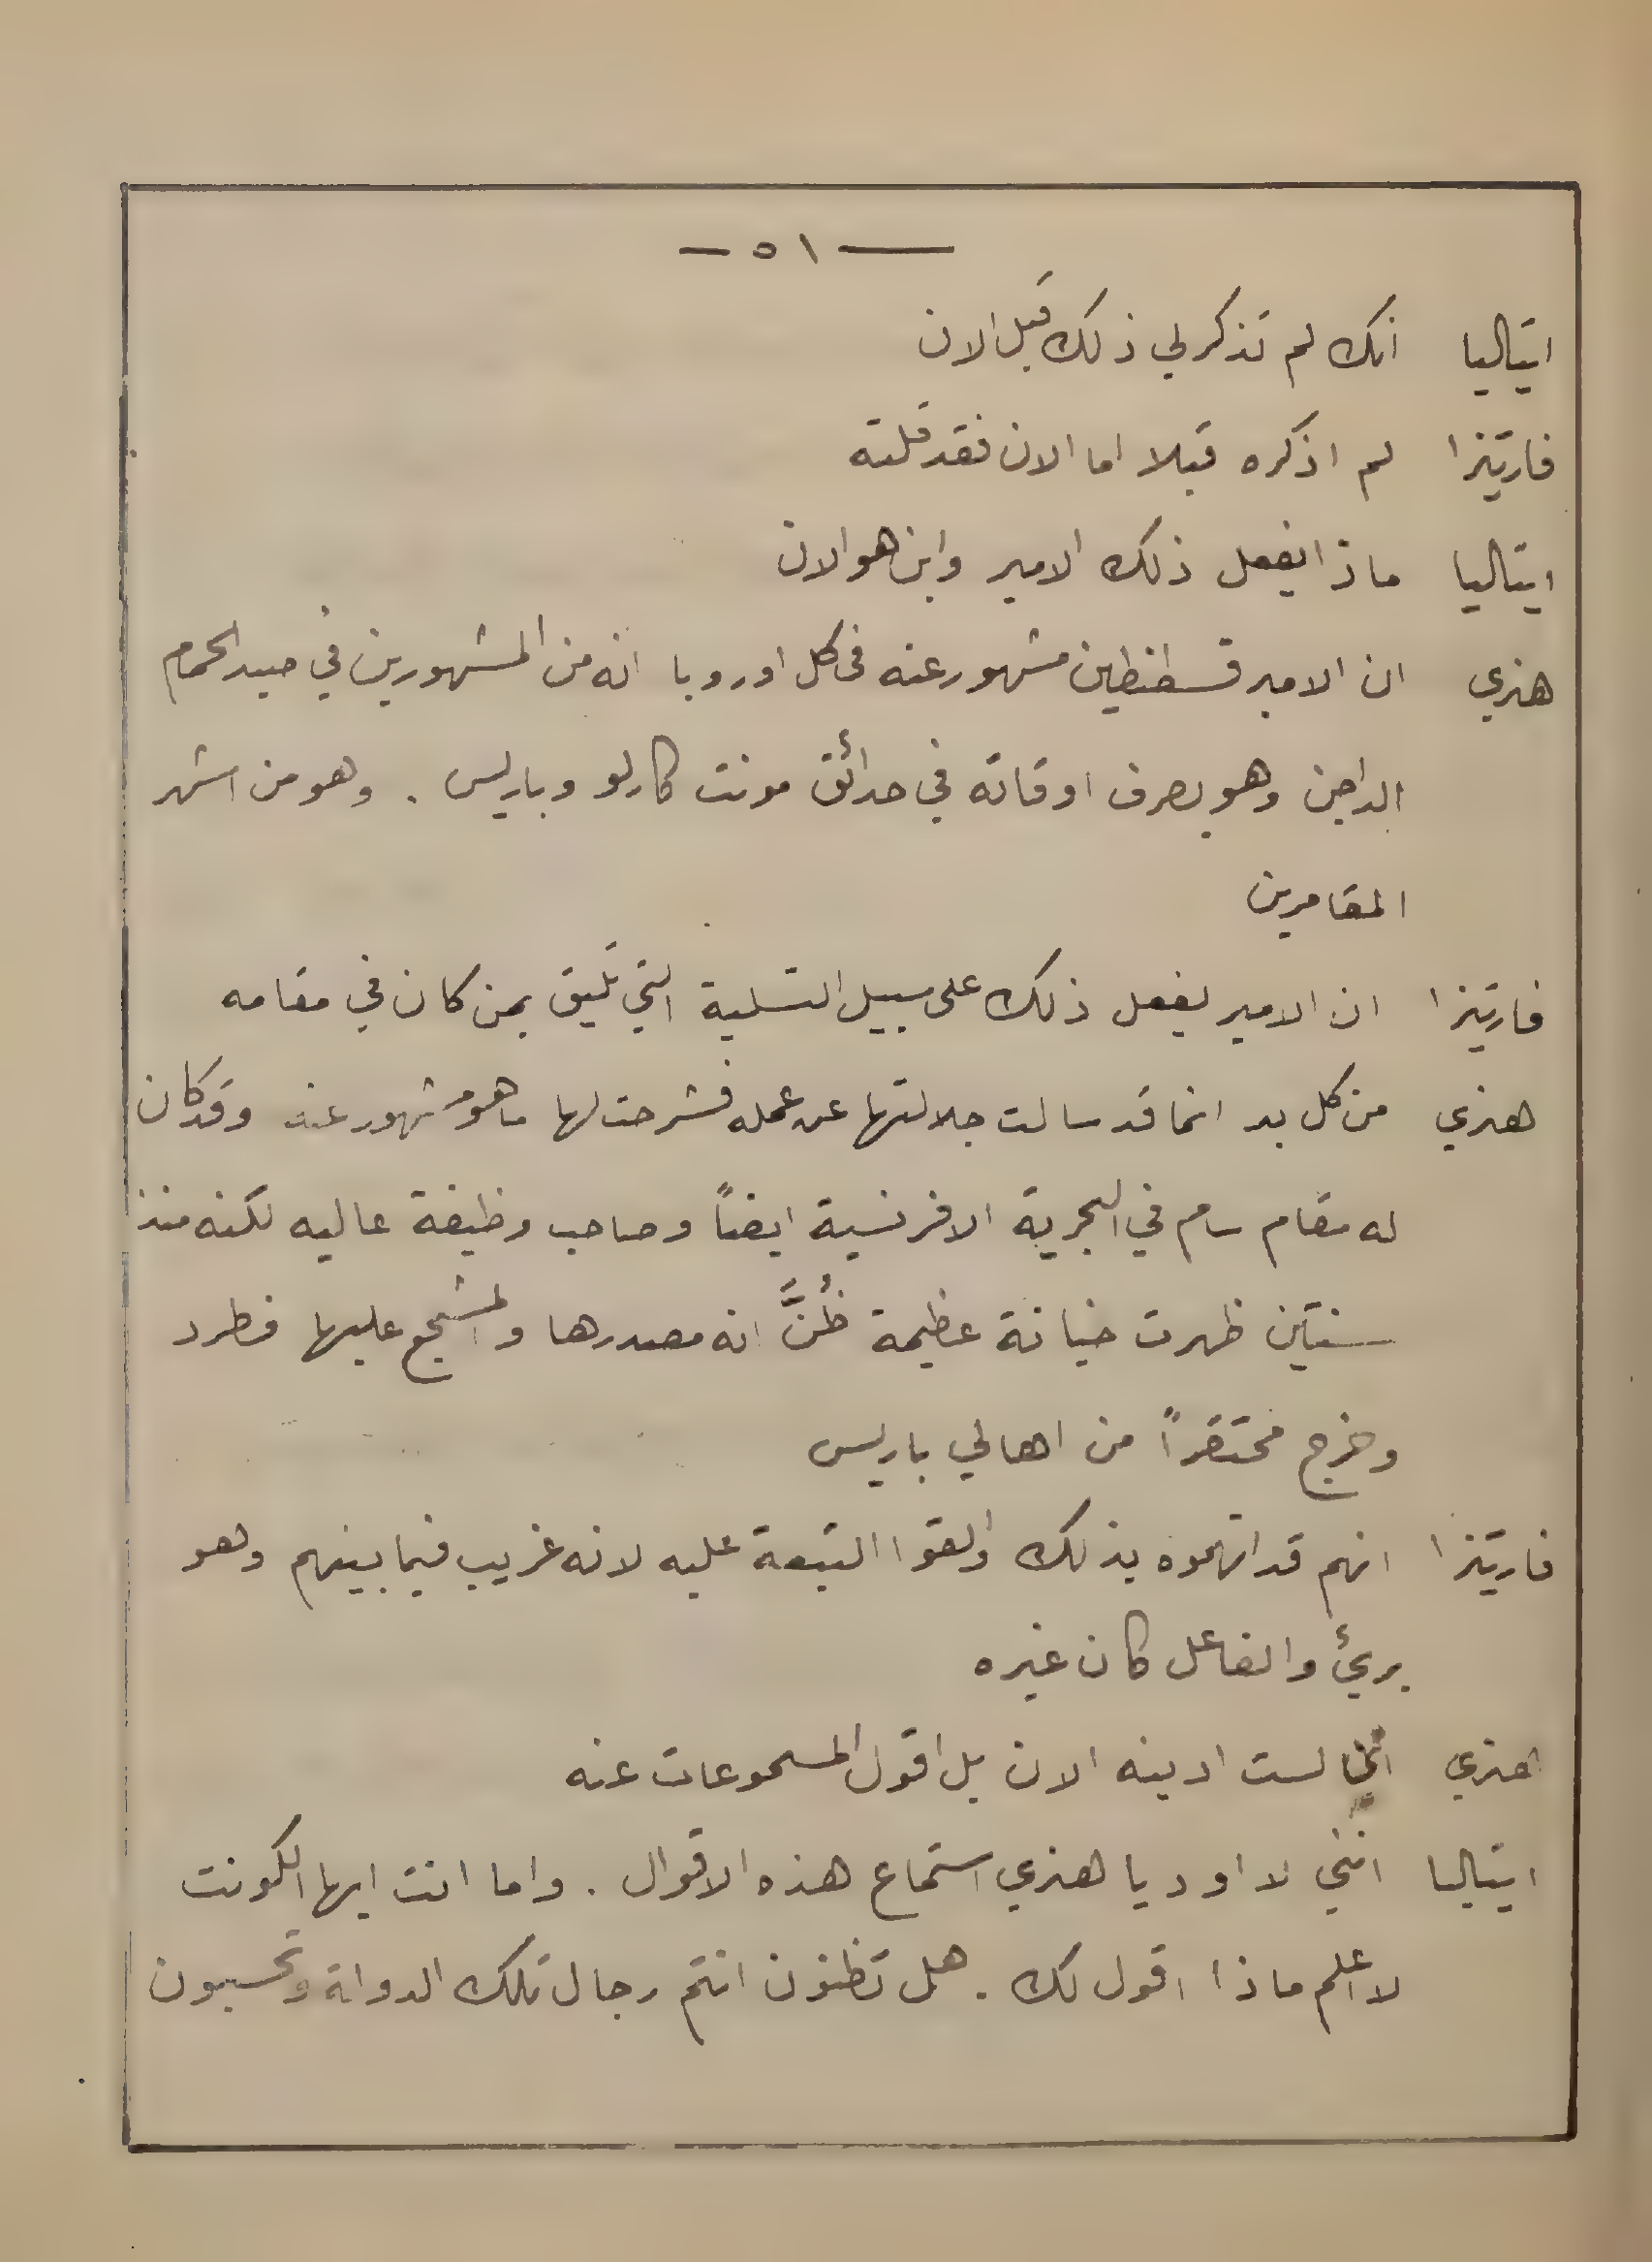 — ٥١ —
ايتاليا انك لم تذكر لي ذلك قبل الان
فارتيزا لم اذكره قبلا اما الان فقد قلته
ايتاليا ماذا يفعل ذلك الامير واين هو الان
هنري ان الامير قسطنطين مشهور عنه في كل اوروبا انه من المشهورين في صيد الحمام
الداجن وهو يصرف اوقاته في حدائق مونت كارلو وباريس . وهو من اشهر
المقامرين
فارتيزا ان الامير يفعل ذلك على سبيل التسلية التي تليق بمن كان في مقامه
هنري من كل بد انما قد سالت جلالتها عن عمله فشرحت لها ما هو مشهور عنه وقد كان
له مقام سام في البحرية الافرنسية ايضاً وصاحب وظيفة عاليه لكنه منذ
سنتين ظهرت خيانة عظيمة ظُنَّ انه مصدرها والمشجع عليها فطرد
وخرج محتقراً من اهالي باريس
فارتيزا انهم قد اتهموه بذلك والقوا التبعة عليه لانه غريب فيما بينهم وهو
بريئ والفاعل كان غيره
هنري لست ادينه الان بل اقول المسموعات عنه
ايتاليا انني لا اود يا هنري استماع هذه الاقوال . واما انت ايها الكونت
لا اعلم ماذا اقول لك . هل تظنون انتم رجال تلك الدولة وتحسبون